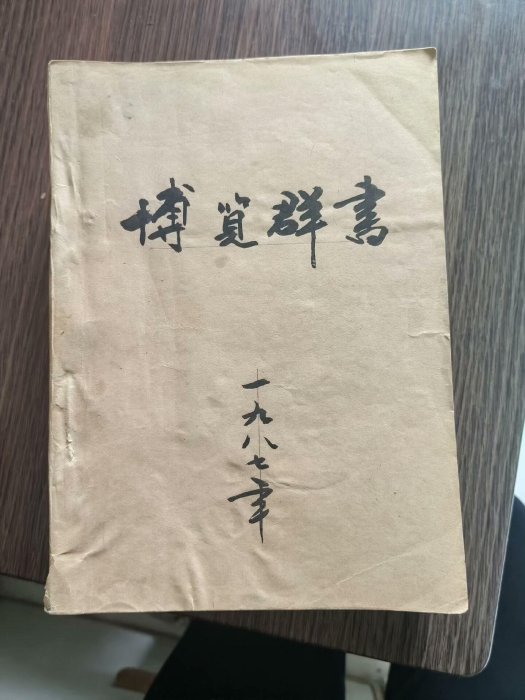 博览群書
一九八七年